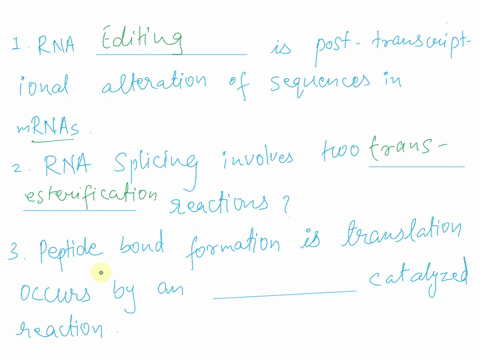 1. RNA Editing is post-transcript-
ional alteration of sequences in
mRNAs.
2. RNA Splicing involves two trans-
esterification reactions?
3. Peptide bond formation is translation
occurs by an ____________ catalyzed
reaction.